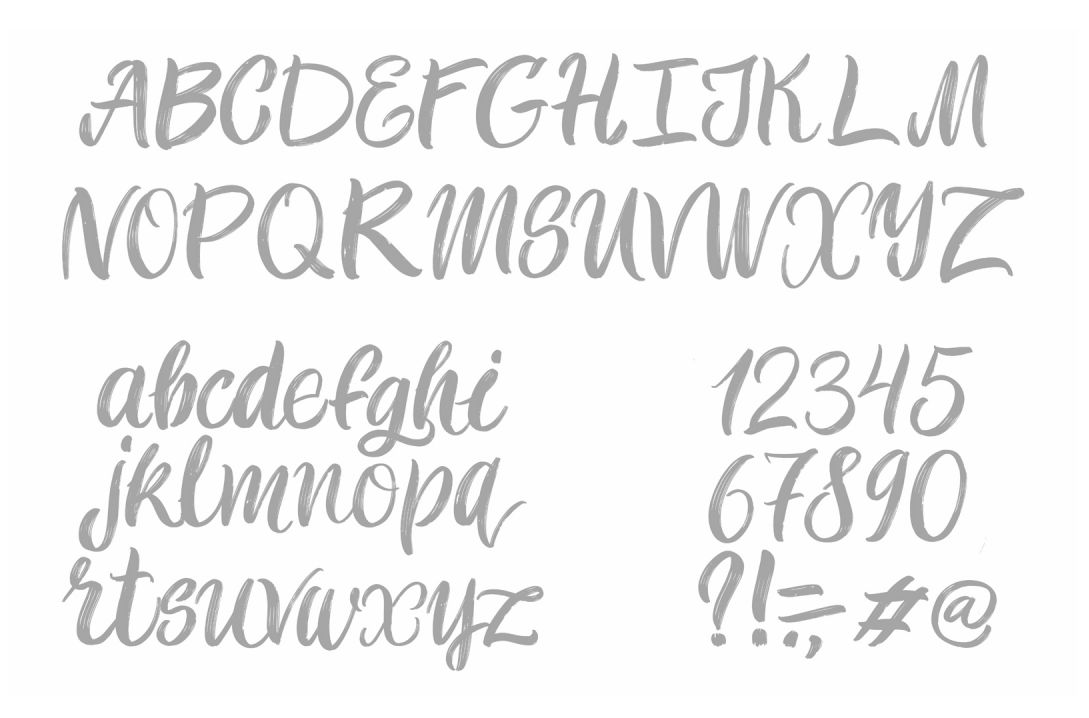 ABCDEFGHIJKLM
NOPQRMSUVWXYZ
abcdefghi
jklmnopq
rtsuvwxyz
12345
67890
?!=.,#@